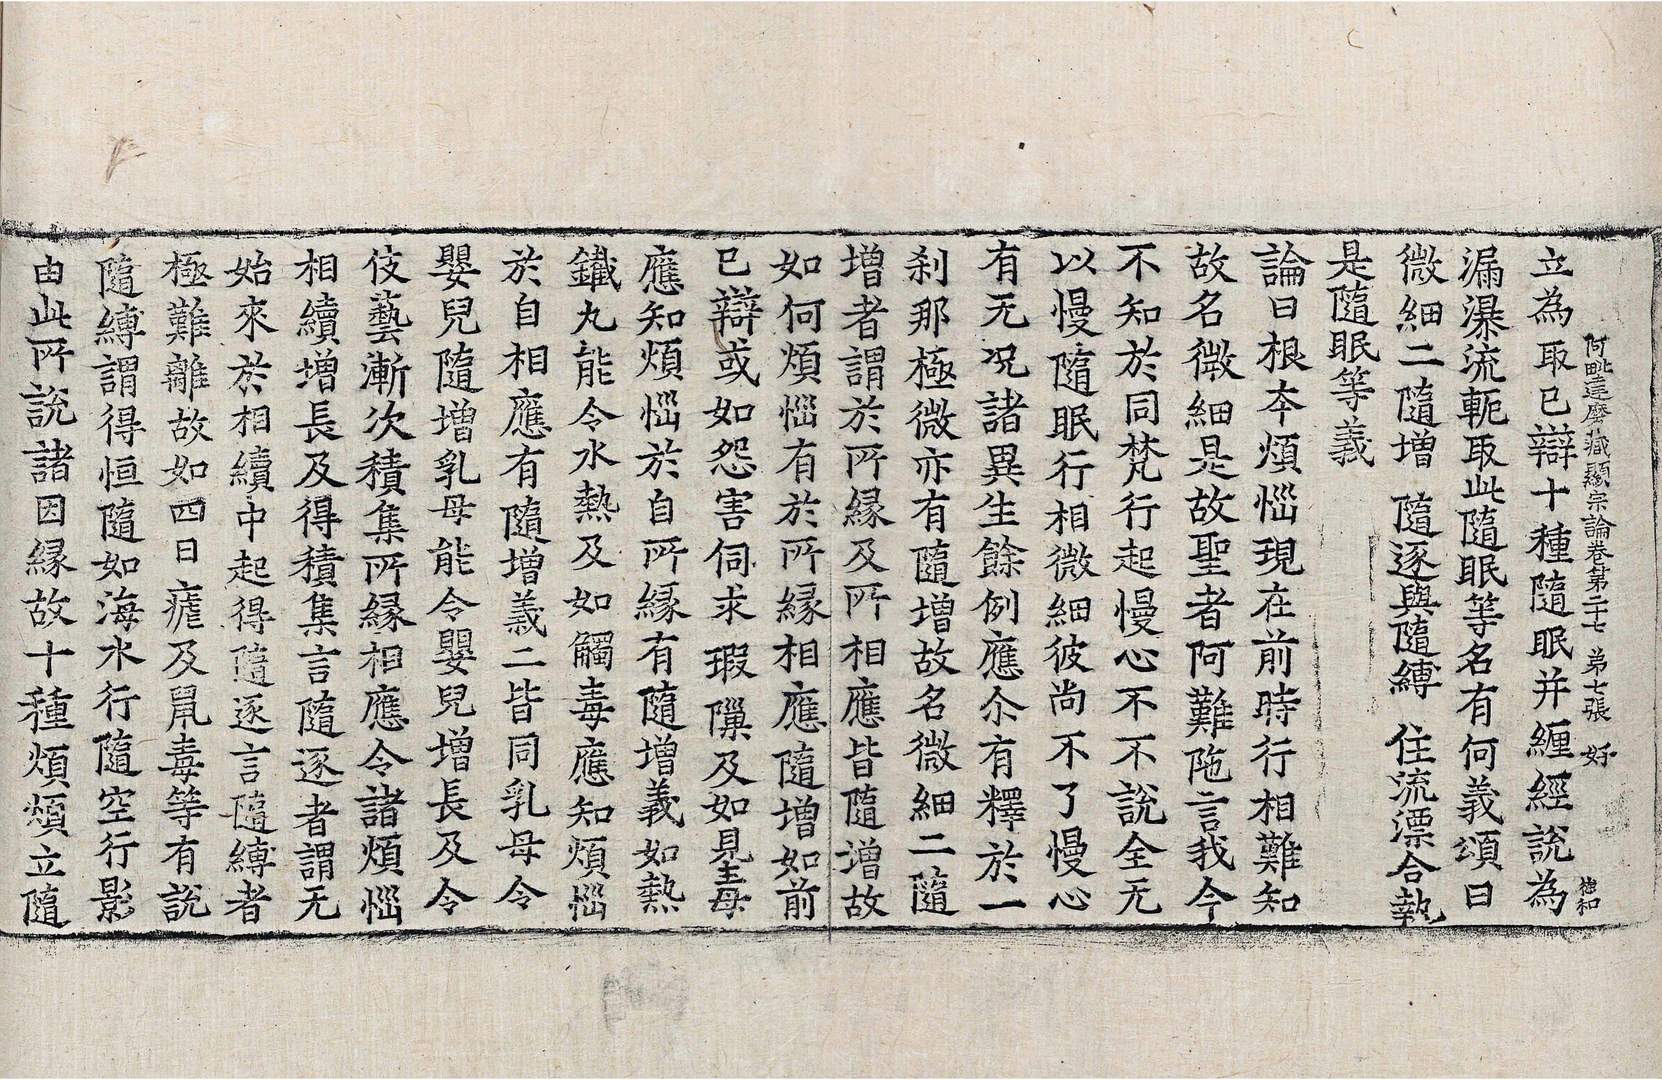 阿毗達磨藏顯宗論卷第二十七 第七張 好 德和
立為取已辯十種隨眠并纏經說為
漏瀑流軛取此隨眠等名有何義頌曰
微細二隨增 隨逐與隨縛 住流漂合執
是隨眠等義
論曰根夲煩惱現在前時行相難知
故名微細是故聖者阿難陁言我今
不知於同梵行起慢心不不說全无
以慢隨眠行相微細彼尚不了慢心
有无况諸異生餘例應尒有釋於一
刹那極微亦有隨增故名微細二隨
增者謂於所緣及所相應皆隨增故
如何煩惱有於所緣相應隨增如前
已辯或如怨害伺求瑕隟及如見毒
應知煩惱於自所緣有隨增義如熱
鐵丸能令水熱及如觸毒應知煩惱
於自相應有隨增義二皆同乳母令
嬰兒隨增乳母能令嬰兒增長及令
伎藝漸次積集所緣相應令諸煩惱
相續增長及得積集言隨逐者謂无
始來於相續中起得隨逐言隨縛者
極難離故如四日瘧及鼠毒等有說
隨縛謂得恒隨如海水行隨空行影
由此所說諸因緣故十種煩煩立隨